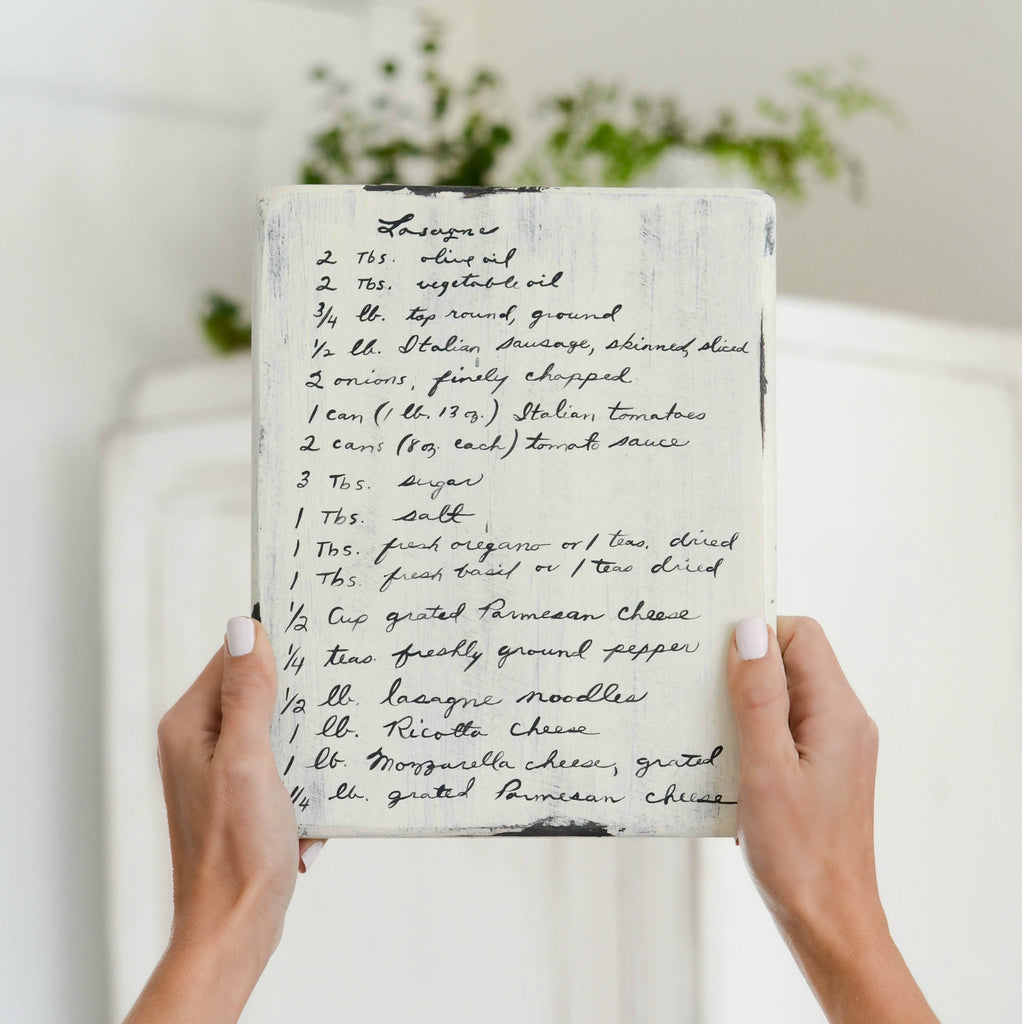 Lasagne
2 Tbs. olive oil
2 Tbs. vegetable oil
3/4 lb. top round, ground
1/2 lb. Italian sausage, skinned, sliced
2 onions, finely chopped
1 can (1 lb. 13 oz.) Italian tomatoes
2 cans (8 oz. each) tomato sauce
3 Tbs. sugar
1 Tbs. salt
1 Tbs. fresh oregano or 1 teas. dried
1 Tbs. fresh basil or 1 teas dried
1/2 Cup grated Parmesan cheese
1/4 teas. freshly ground pepper
1/2 lb. lasagne noodles
1 lb. Ricotta cheese
1 lb. Mozzarella cheese, grated
1/4 lb. grated Parmesan cheese